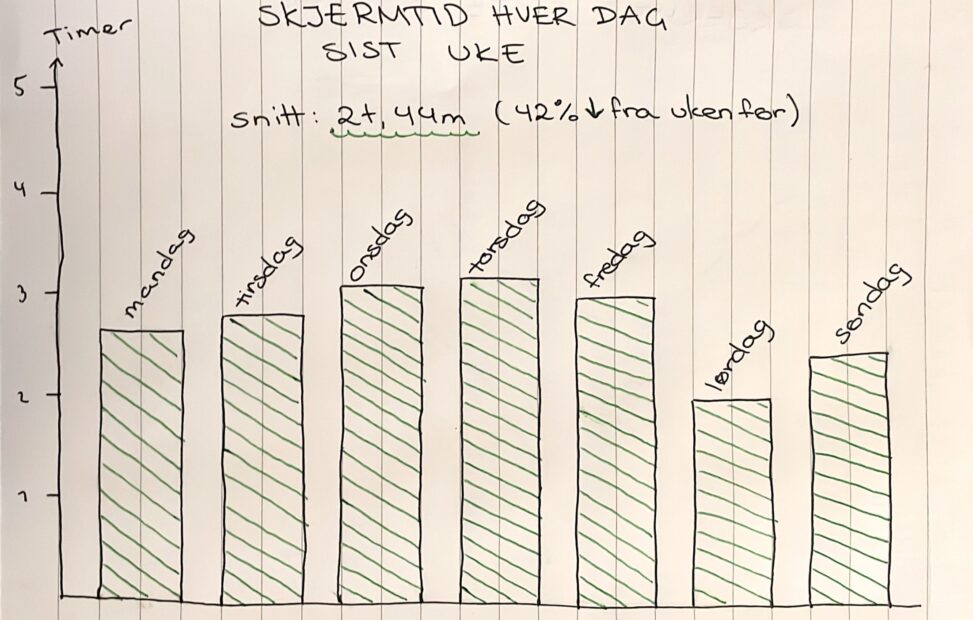 SKJERMTID HVER DAG
SIST UKE
Timer
snitt: 2t, 44m (42% ↓ fra uken før)
5
4
3
2
1
mandag
tirsdag
onsdag
torsdag
fredag
lørdag
søndag